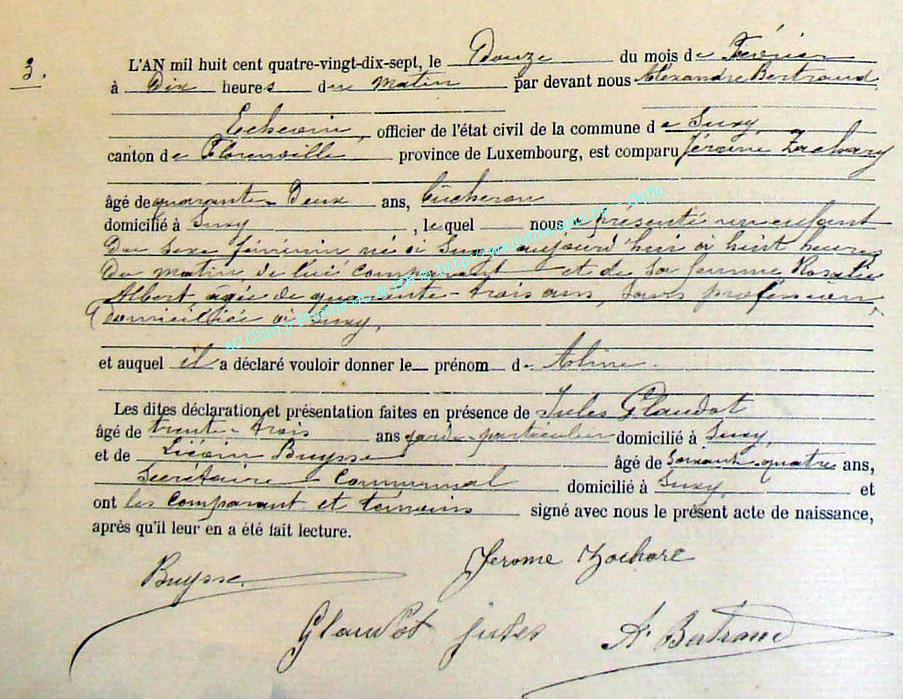 3.
L'AN mil huit cent quatre-vingt-dix-sept, le Douze du mois de Février
à Dix heures du matin par devant nous Alexandre Bertrand,
Echevin, officier de l'état civil de la commune de Suxy
canton de Florenville province de Luxembourg, est comparu Jérome Zachary
âgé de quarante-Deux ans, bûcheron
domicilié à Suxy, lequel nous a présenté un enfant
Du sexe féminin né à Suxy aujourd'hui à huit heures
Du matin de lui comparant et de sa femme Rosalie
Albert, agée de quarante-trois ans, sans profession,
domiciliée à Suxy,
et auquel il a déclaré vouloir donner le prénom d' Aline.
Les dites déclaration et présentation faites en présence de Jules Glaudot
âgé de trente-trois ans garde-particulier domicilié à Suxy,
et de Buysse âgé de soixante quatre ans,
Secrétaire Communal domicilié à Suxy, et
ont les comparant et témoins signé avec nous le présent acte de naissance,
après qu'il leur en a été fait lecture.
Buysse Jerome Zachare
Glaudot jules A. Bertrand